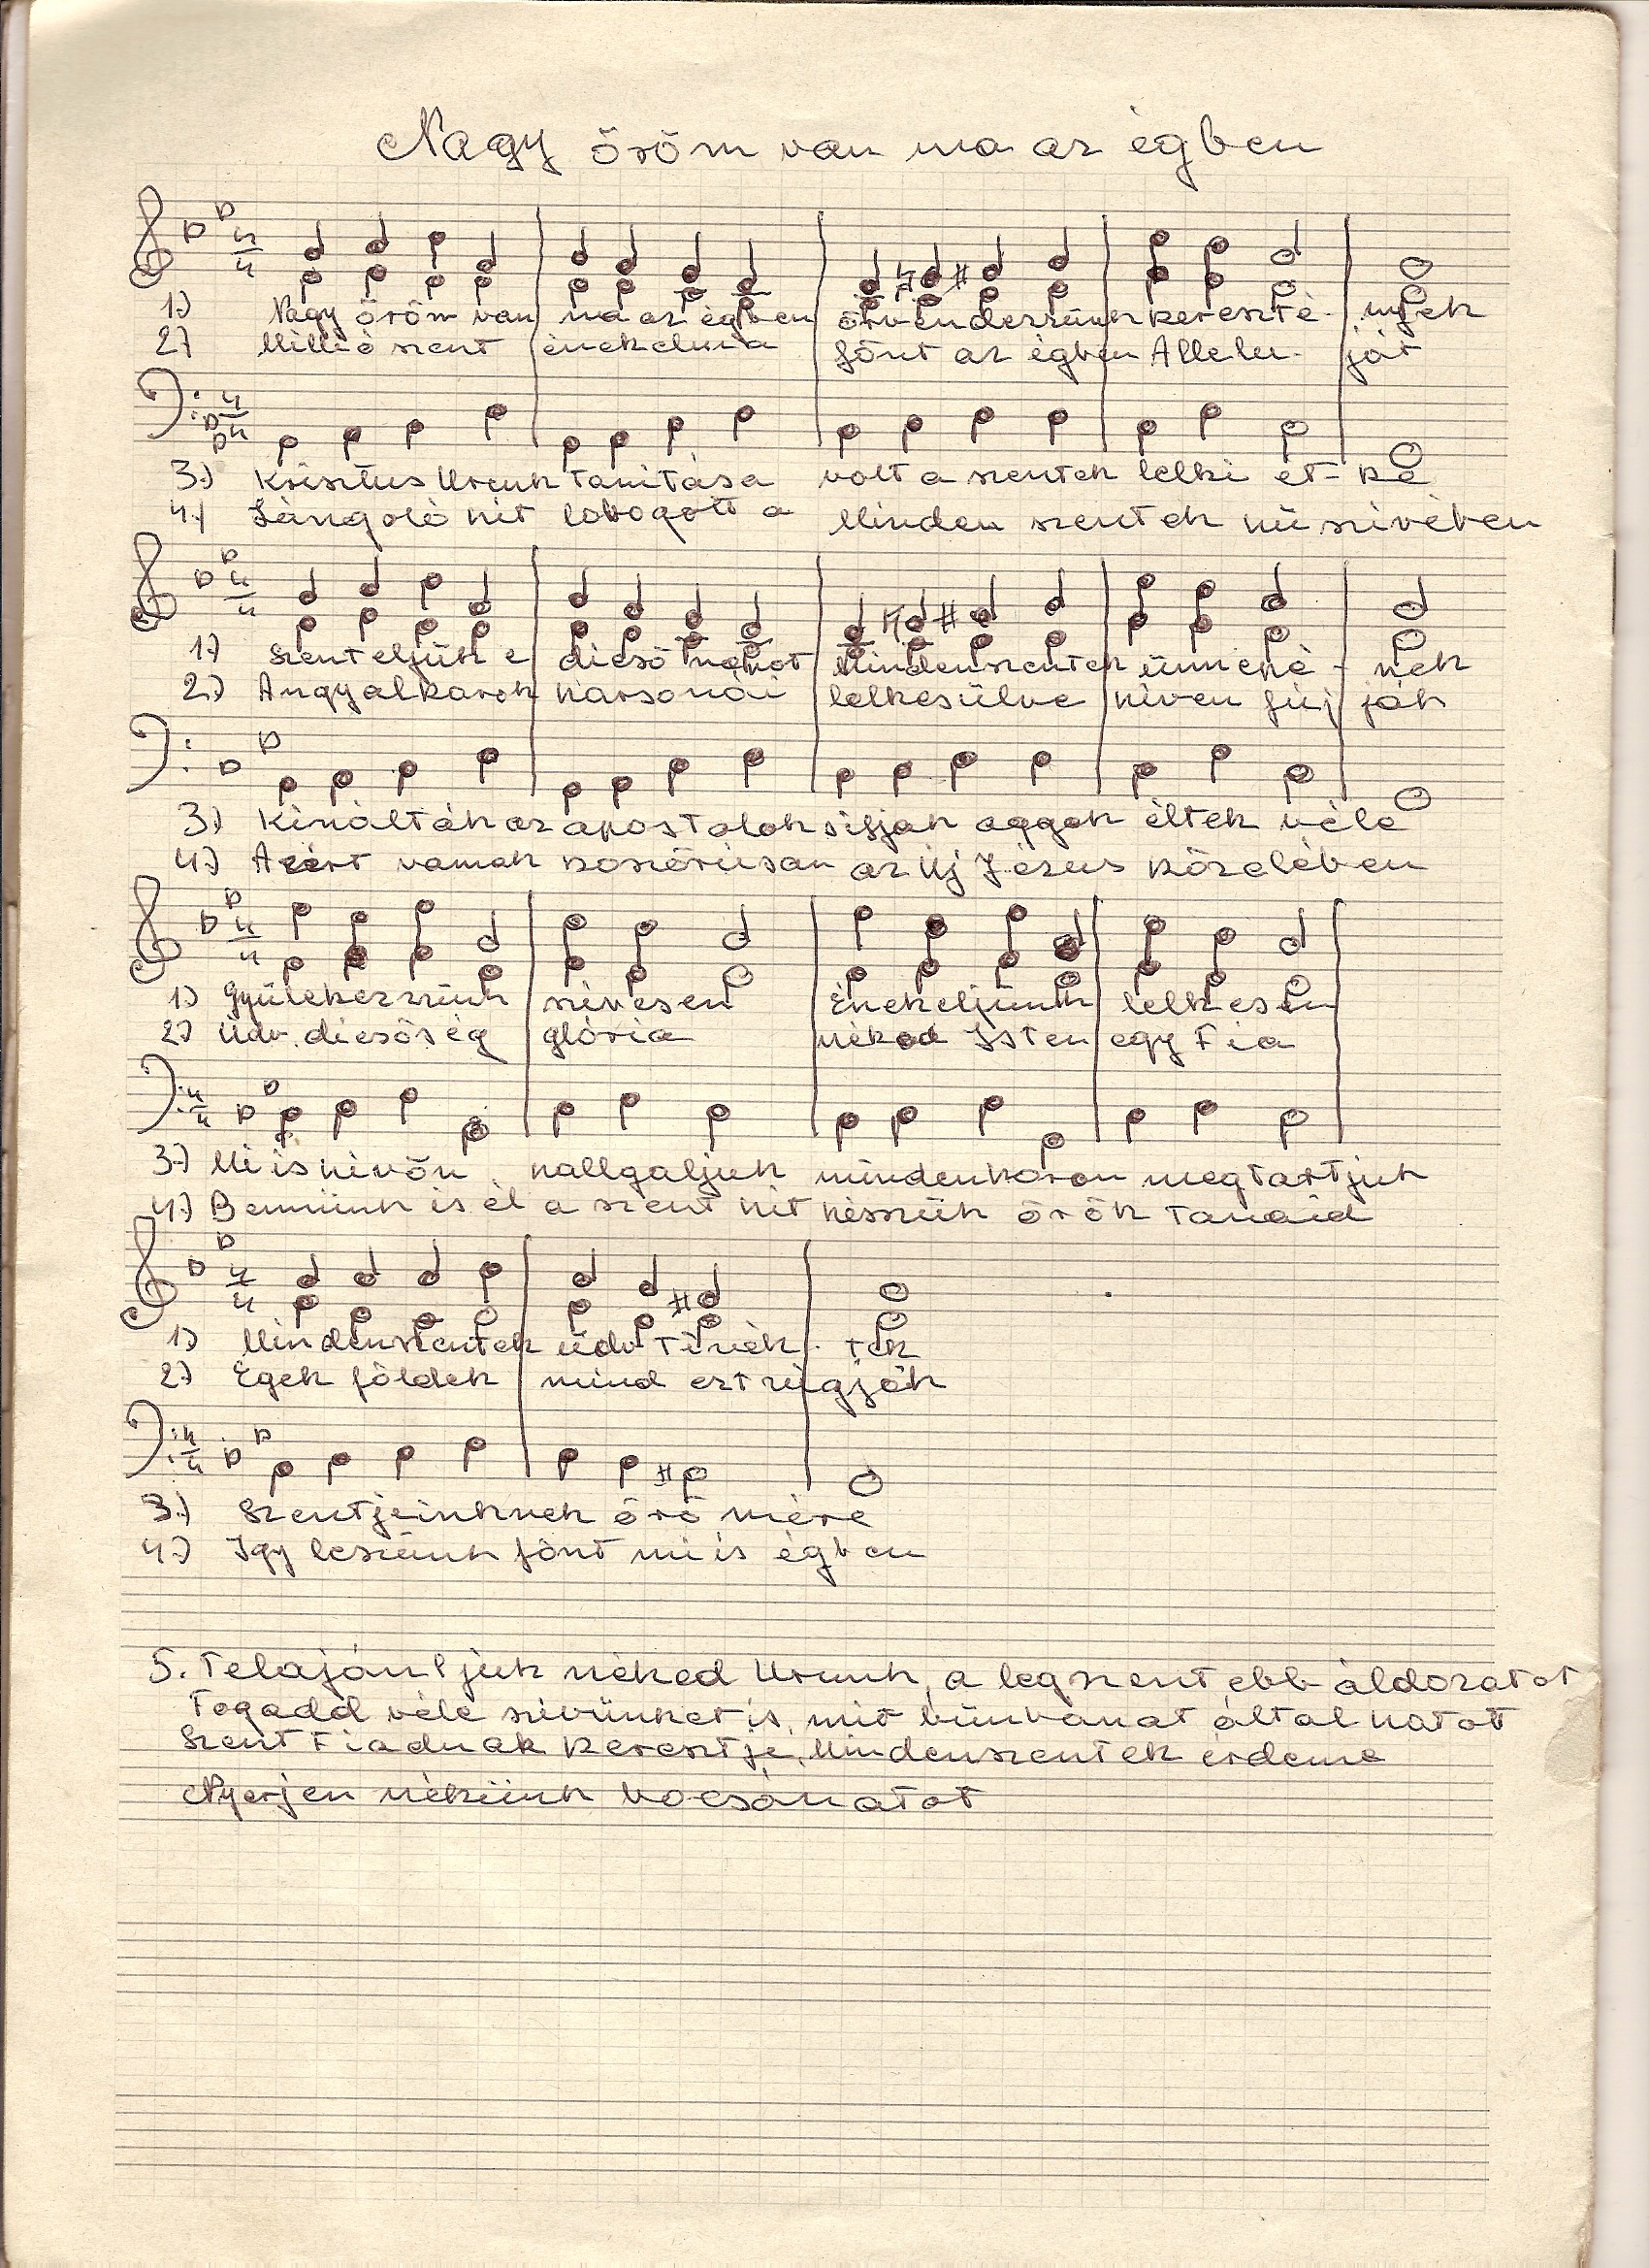 Nagy öröm van ma az égben
1) Nagy öröm van ma az égben örvendezzünk kereszté- nyek
2) Millió szent énekel ma fönt az égben Allelu- ját
3.) Krisztus Urunk tanitása volt a szentek lelki ét- ke
4.) Lángoló hit lobogott a Minden szentek hü szivében
1.) Szenteljük e dicső napot Mindenszentek ünnepé - nek
2.) Angyalkarok harsonái lelkesülve hiven fúj ják
3.) Kinálták az apostolok ifjak aggok éltek véle
4.) Azért vannak koszorúsan az Új Jézus közelében
1.) Gyülekezzünk szivesen Énekeljünk lelkesen
2.) Üdv. dicsőség glória néked Isten egy Fia
3.) Mi is hivőn hallgatjuk mindenkoron megtartjuk
4.) Bennünk is él a szent hit hisszük örök tanaid
1) Mindenszentek üdv Tinék - tek
2.) Egek földek mind ezt zúgják
3.) Szentjeinknek örö mére
4.) Igy leszünk fönt mi is égben
5. Felajánljuk néked Urunk, a legszentebb áldozatot
Fogadd véle szivünket is, mit bünbánat által hatott
Szent Fiadnak keresztje, Mindenszentek érdeme
Nyerjen nékünk bocsánatot